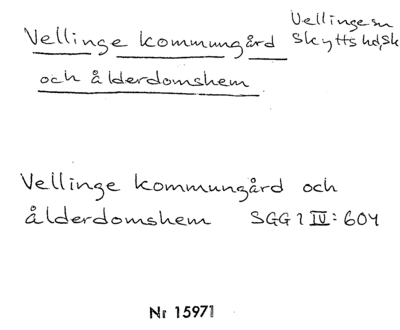 Vellinge kommungård
och ålderdomshem
Vellinge sn
Skytts hd, Sk
Vellinge kommungård och
ålderdomshem SGG 2 IV: 604
Nr 15971